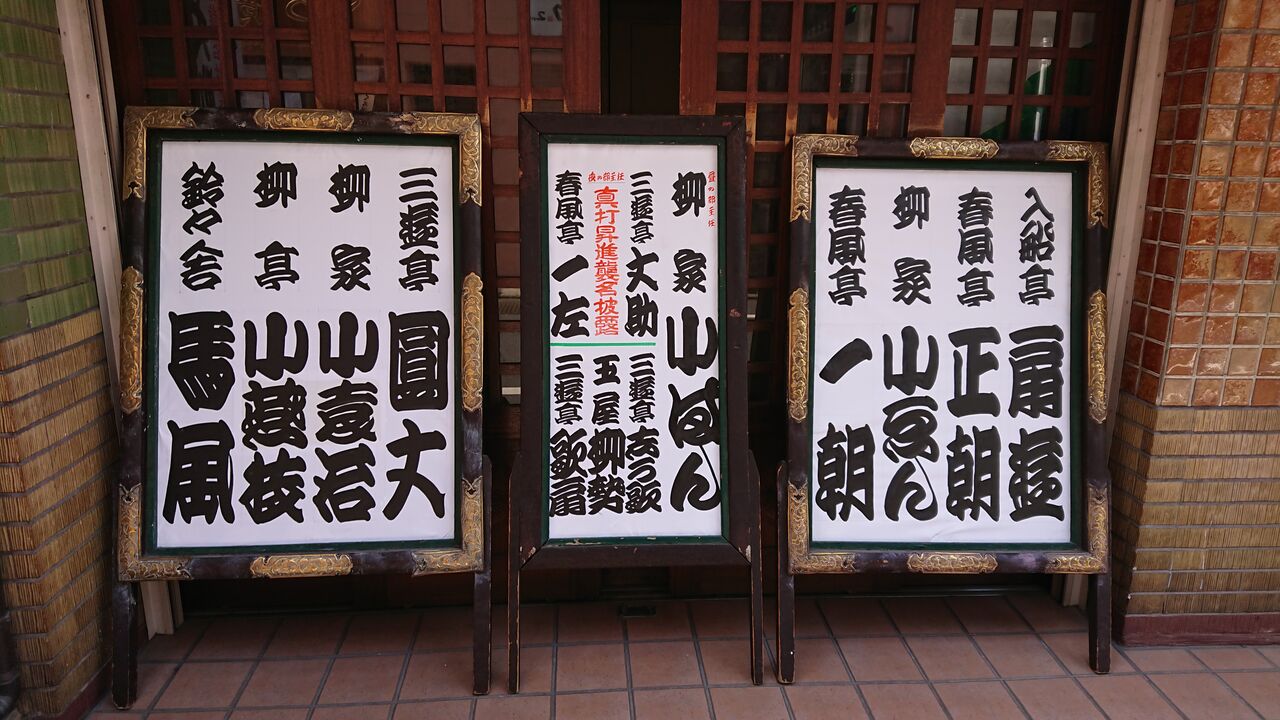 入船亭 扇遊
春風亭 正朝
柳家 小ゑん
春風亭 一朝
昼の部主任
柳家 小はん
夜の部主任
真打昇進襲名披露
三遊亭 丈助
春風亭 一左
三遊亭 志う歌
玉屋 柳勢
三遊亭 歌扇
三遊亭 圓丈
柳家 小袁治
柳亭 小燕枝
鈴々舎 馬風